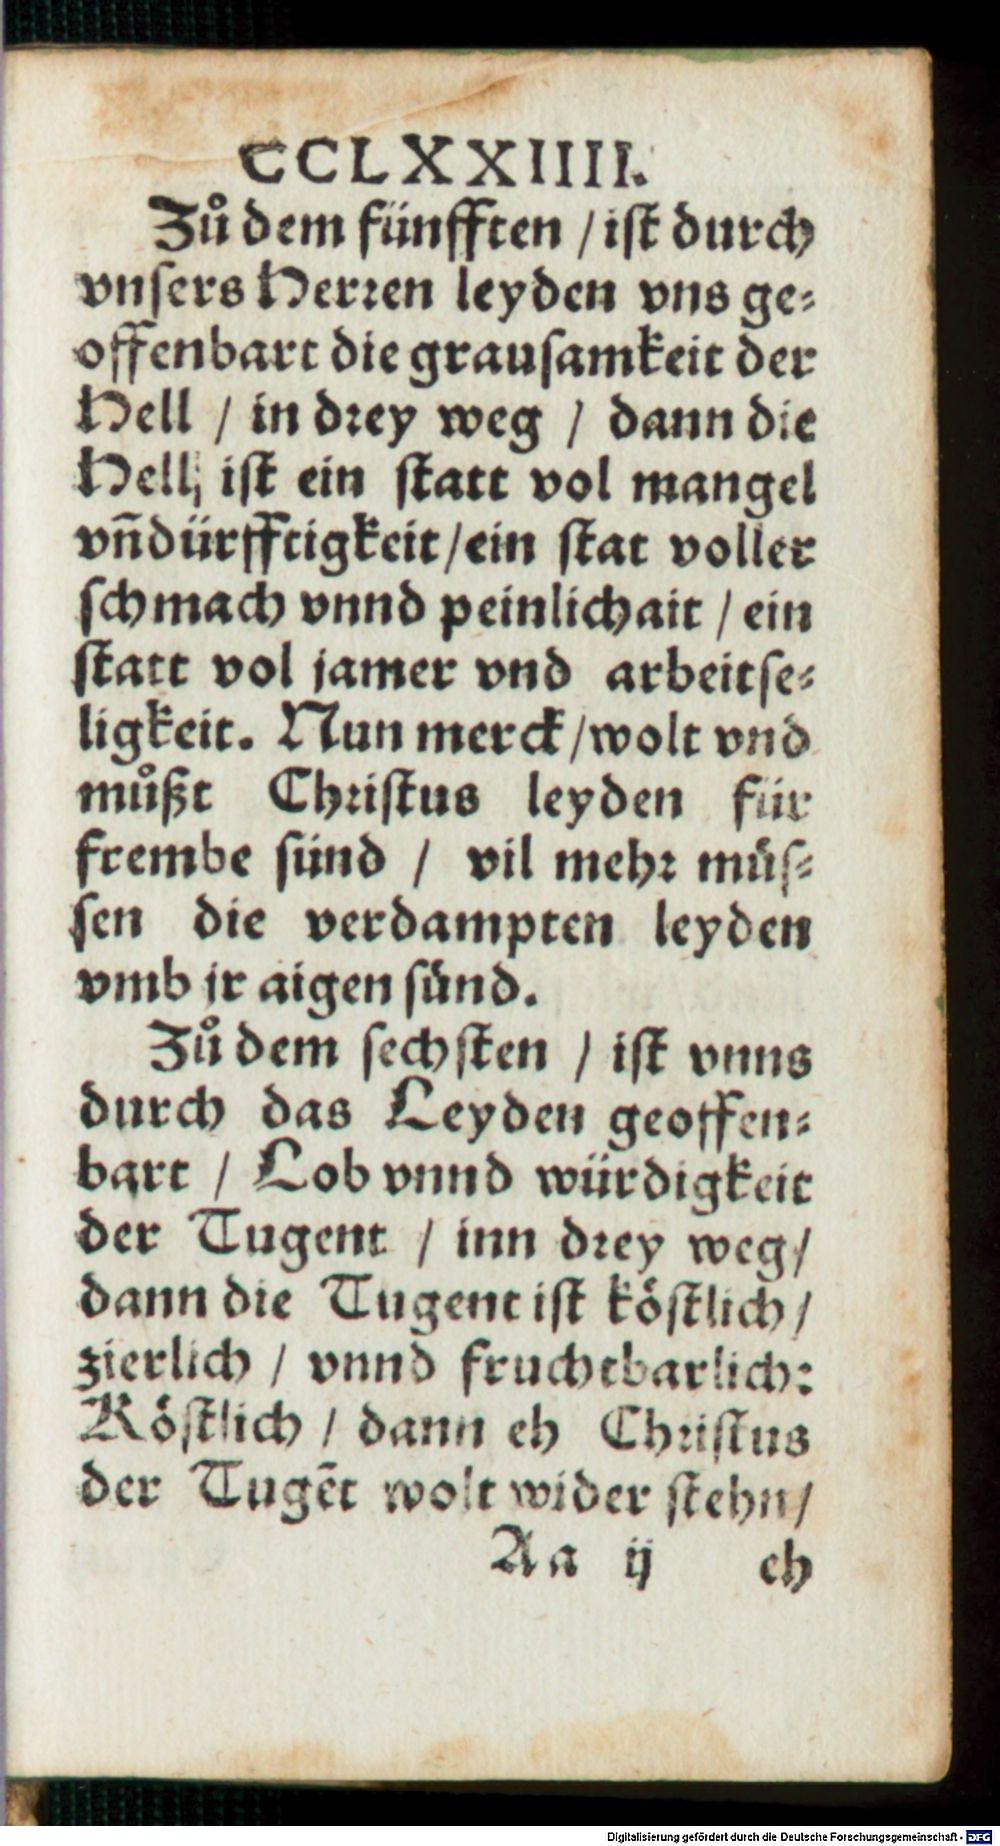 CCLXXIIII.
Zů dem fünfften / iſt durch
vnſers Herꝛen leyden vns ge⸗
offenbart die grauſamkeit der
Hell / in dꝛey weg / dann die
Hell, iſt ein ſtatt vol mangel
vñdürfftigkeit/ein ſtat voller
ſchmach vnnd peinlichait / ein
ſtatt vol jamer vnd arbeitſe⸗
ligkeit. Nun merck/wolt vnd
můßt Chꝛiſtus leyden für
frembe ſünd / vil mehꝛ müſ⸗
ſen die verdampten leyden
vmb jr aigen ſünd.
Zů dem ſechſten / iſt vnns
durch das Leyden geoffen⸗
bart / Lob vnnd würdigkeit
der Tugent / inn dꝛey weg/
dann die Tugent iſt köſtlich/
zierlich / vnnd fruchtbarlich:
Köſtlich / dann eh Chꝛiſtus
der Tugēt wolt wider ſtehn/
Aa ij eh
Digitalisierung gefördert durch die Deutsche Forschungsgemeinschaft - DFG